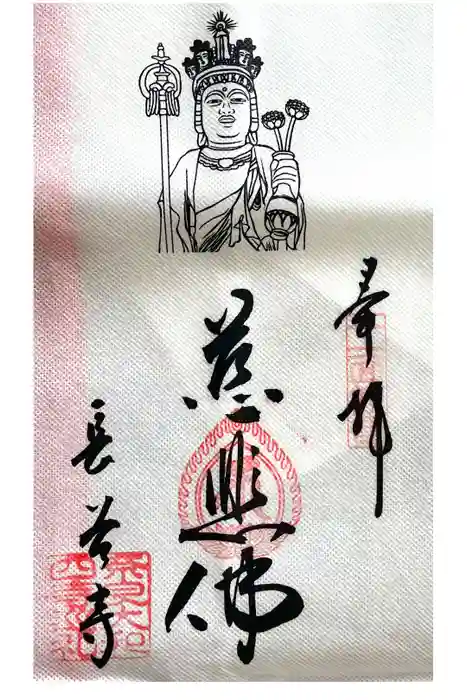 奉拝
慈悲佛
長谷寺